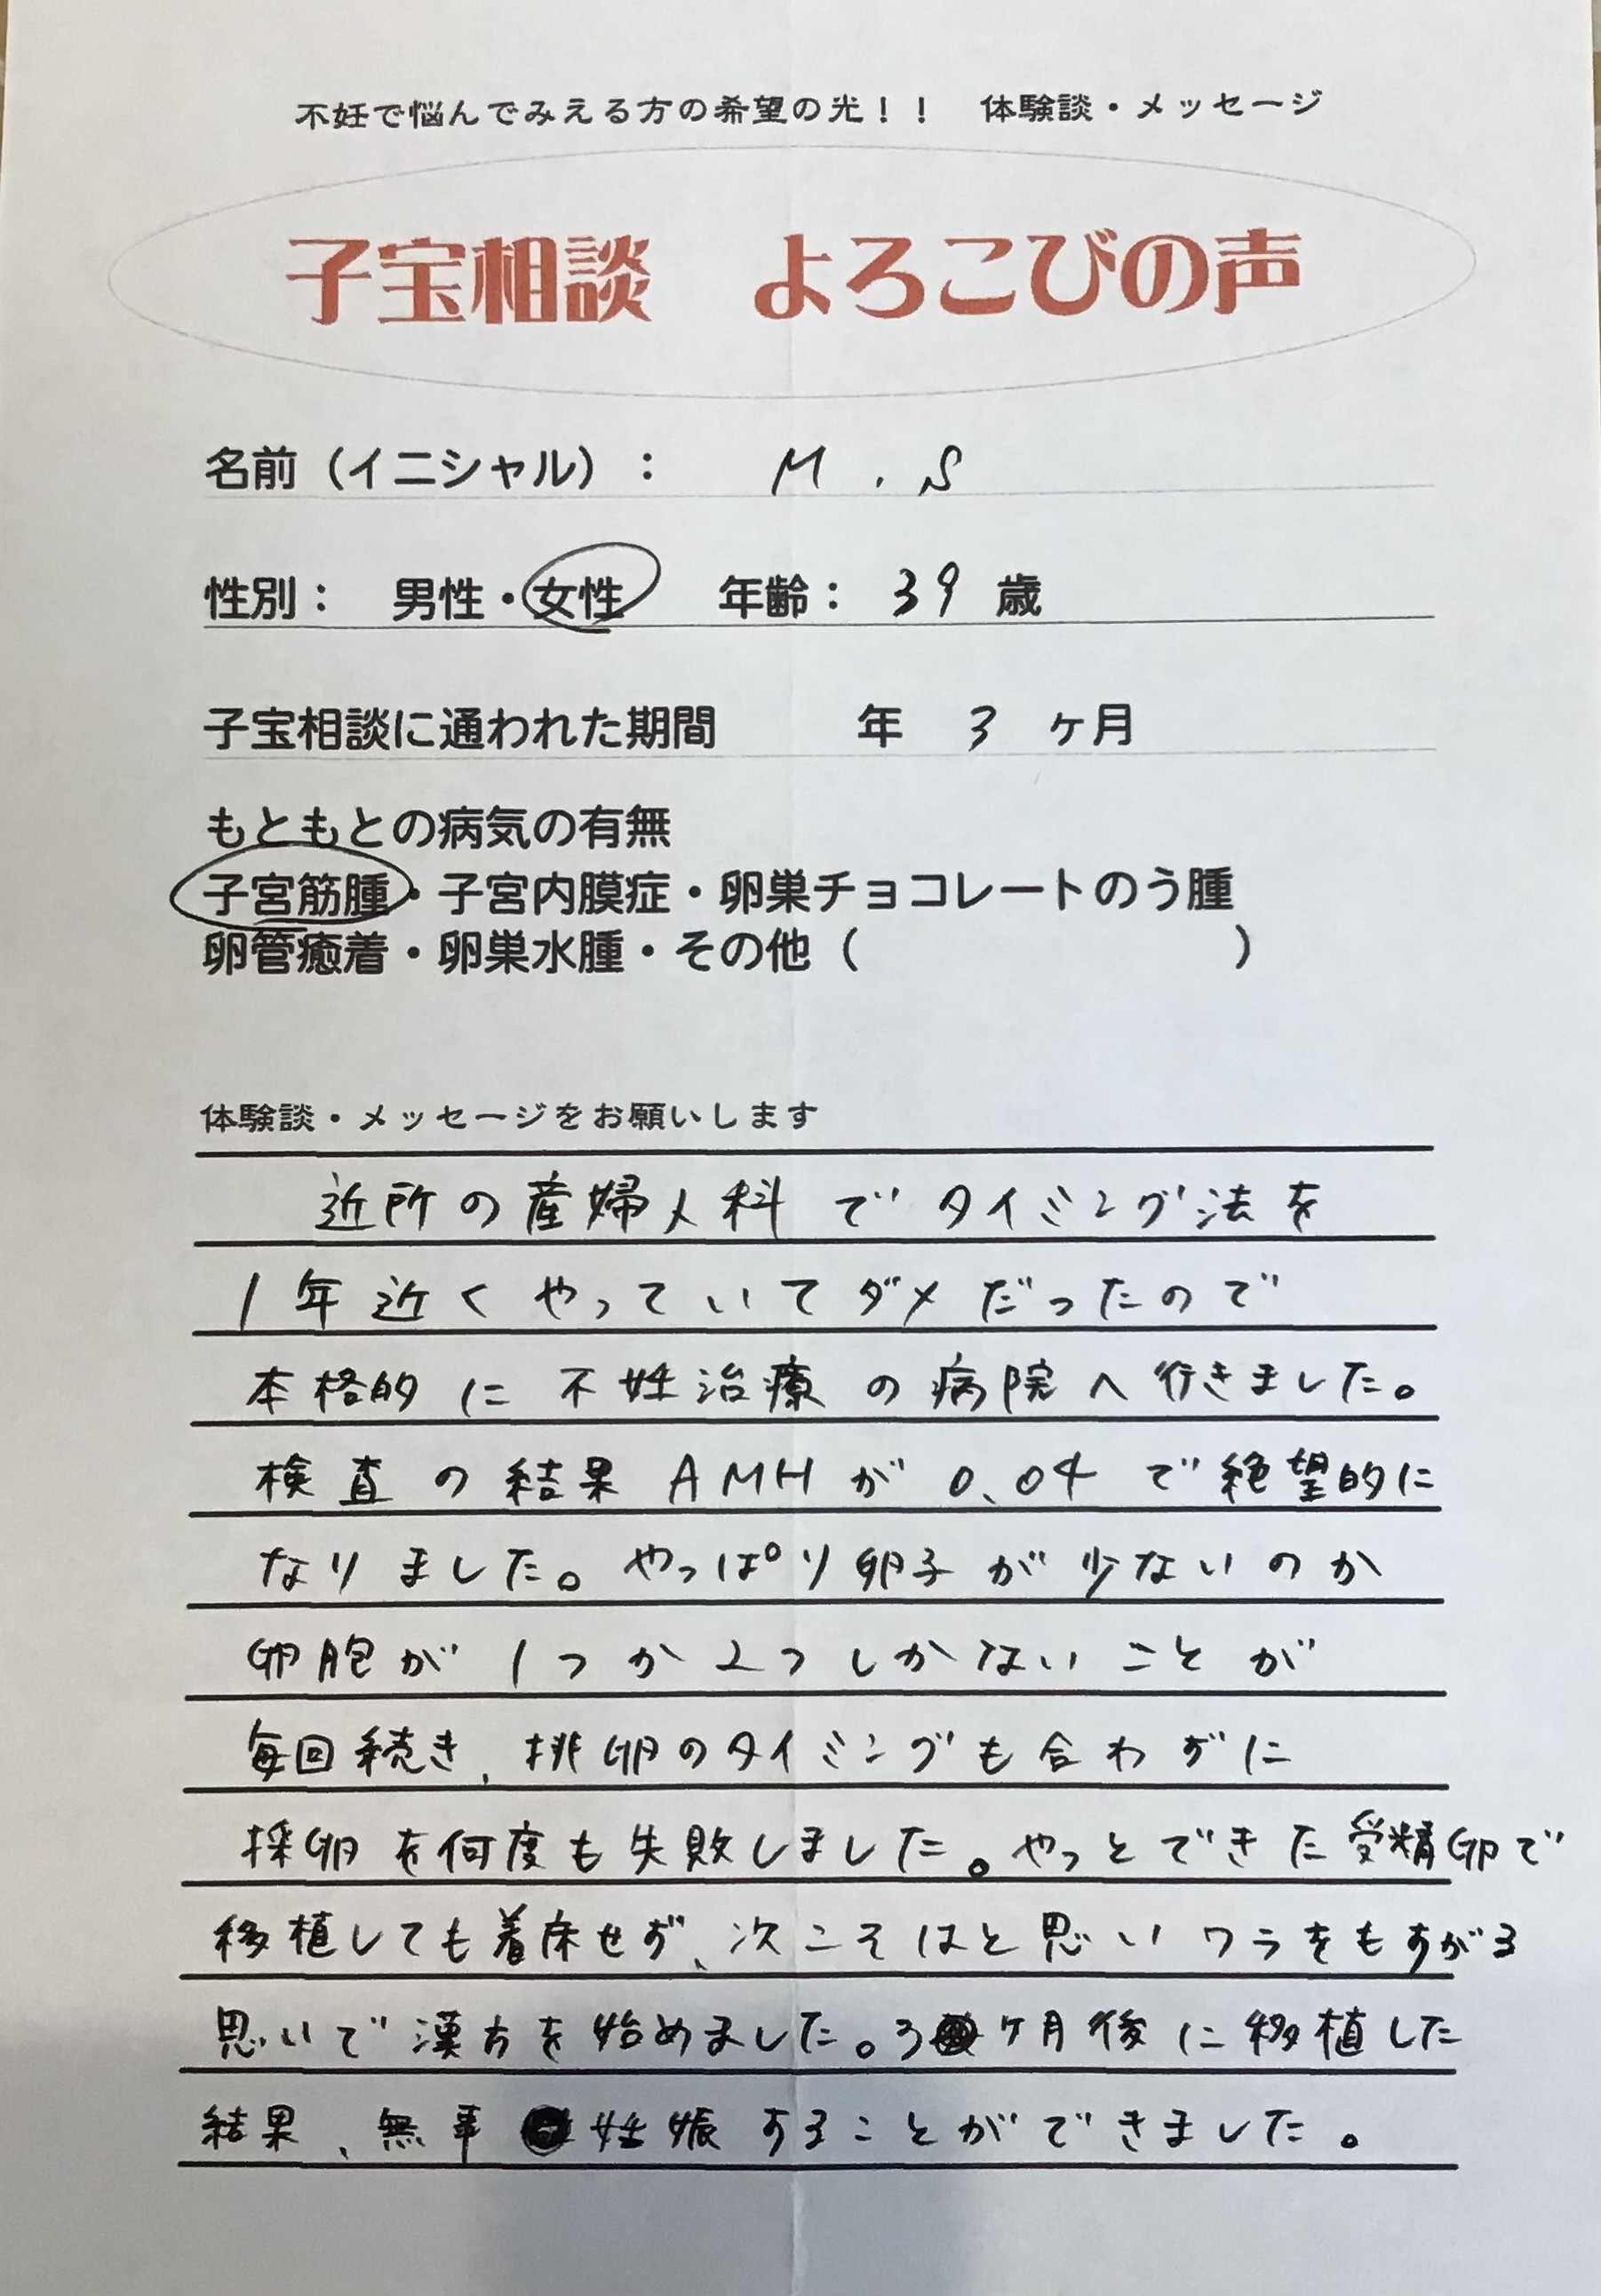 不妊で悩んでみえる方の希望の光！！　体験談・メッセージ
子宝相談　よろこびの声
名前（イニシャル）：　M . S
性別：　男性・女性　年齢：　39　歳
子宝相談に通われた期間　　年　3　ヶ月
もともとの病気の有無
子宮筋腫・子宮内膜症・卵巣チョコレートのう腫
卵管癒着・卵巣水腫・その他（　　　）
体験談・メッセージをお願いします
近所の産婦人科でタイミング法を
1年近くやっていてダメだったので
本格的に不妊治療の病院へ行きました。
検査の結果AMHが0.04で絶望的に
なりました。やっぱり卵子が少ないのか
卵胞が1つか2つしかないことが
毎回続き、排卵のタイミングも合わずに
採卵を何度も失敗しました。やっとできた受精卵で
移植しても着床せず、次こそはと思いワラをもすがる
思いで漢方を始めました。3ヶ月後に移植した
結果、無事妊娠することができました。